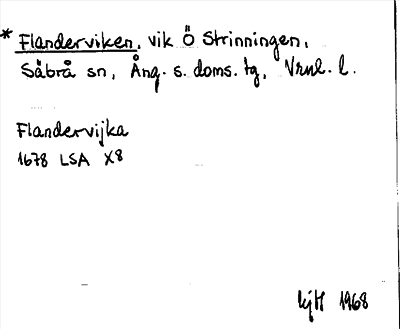 * Flanderviken, vik Ö Strinningen,
Säbrå sn, Ång. s. doms. tg, Vrnl. l.
Flandervijka
1678 LSA X8
kjH 1968